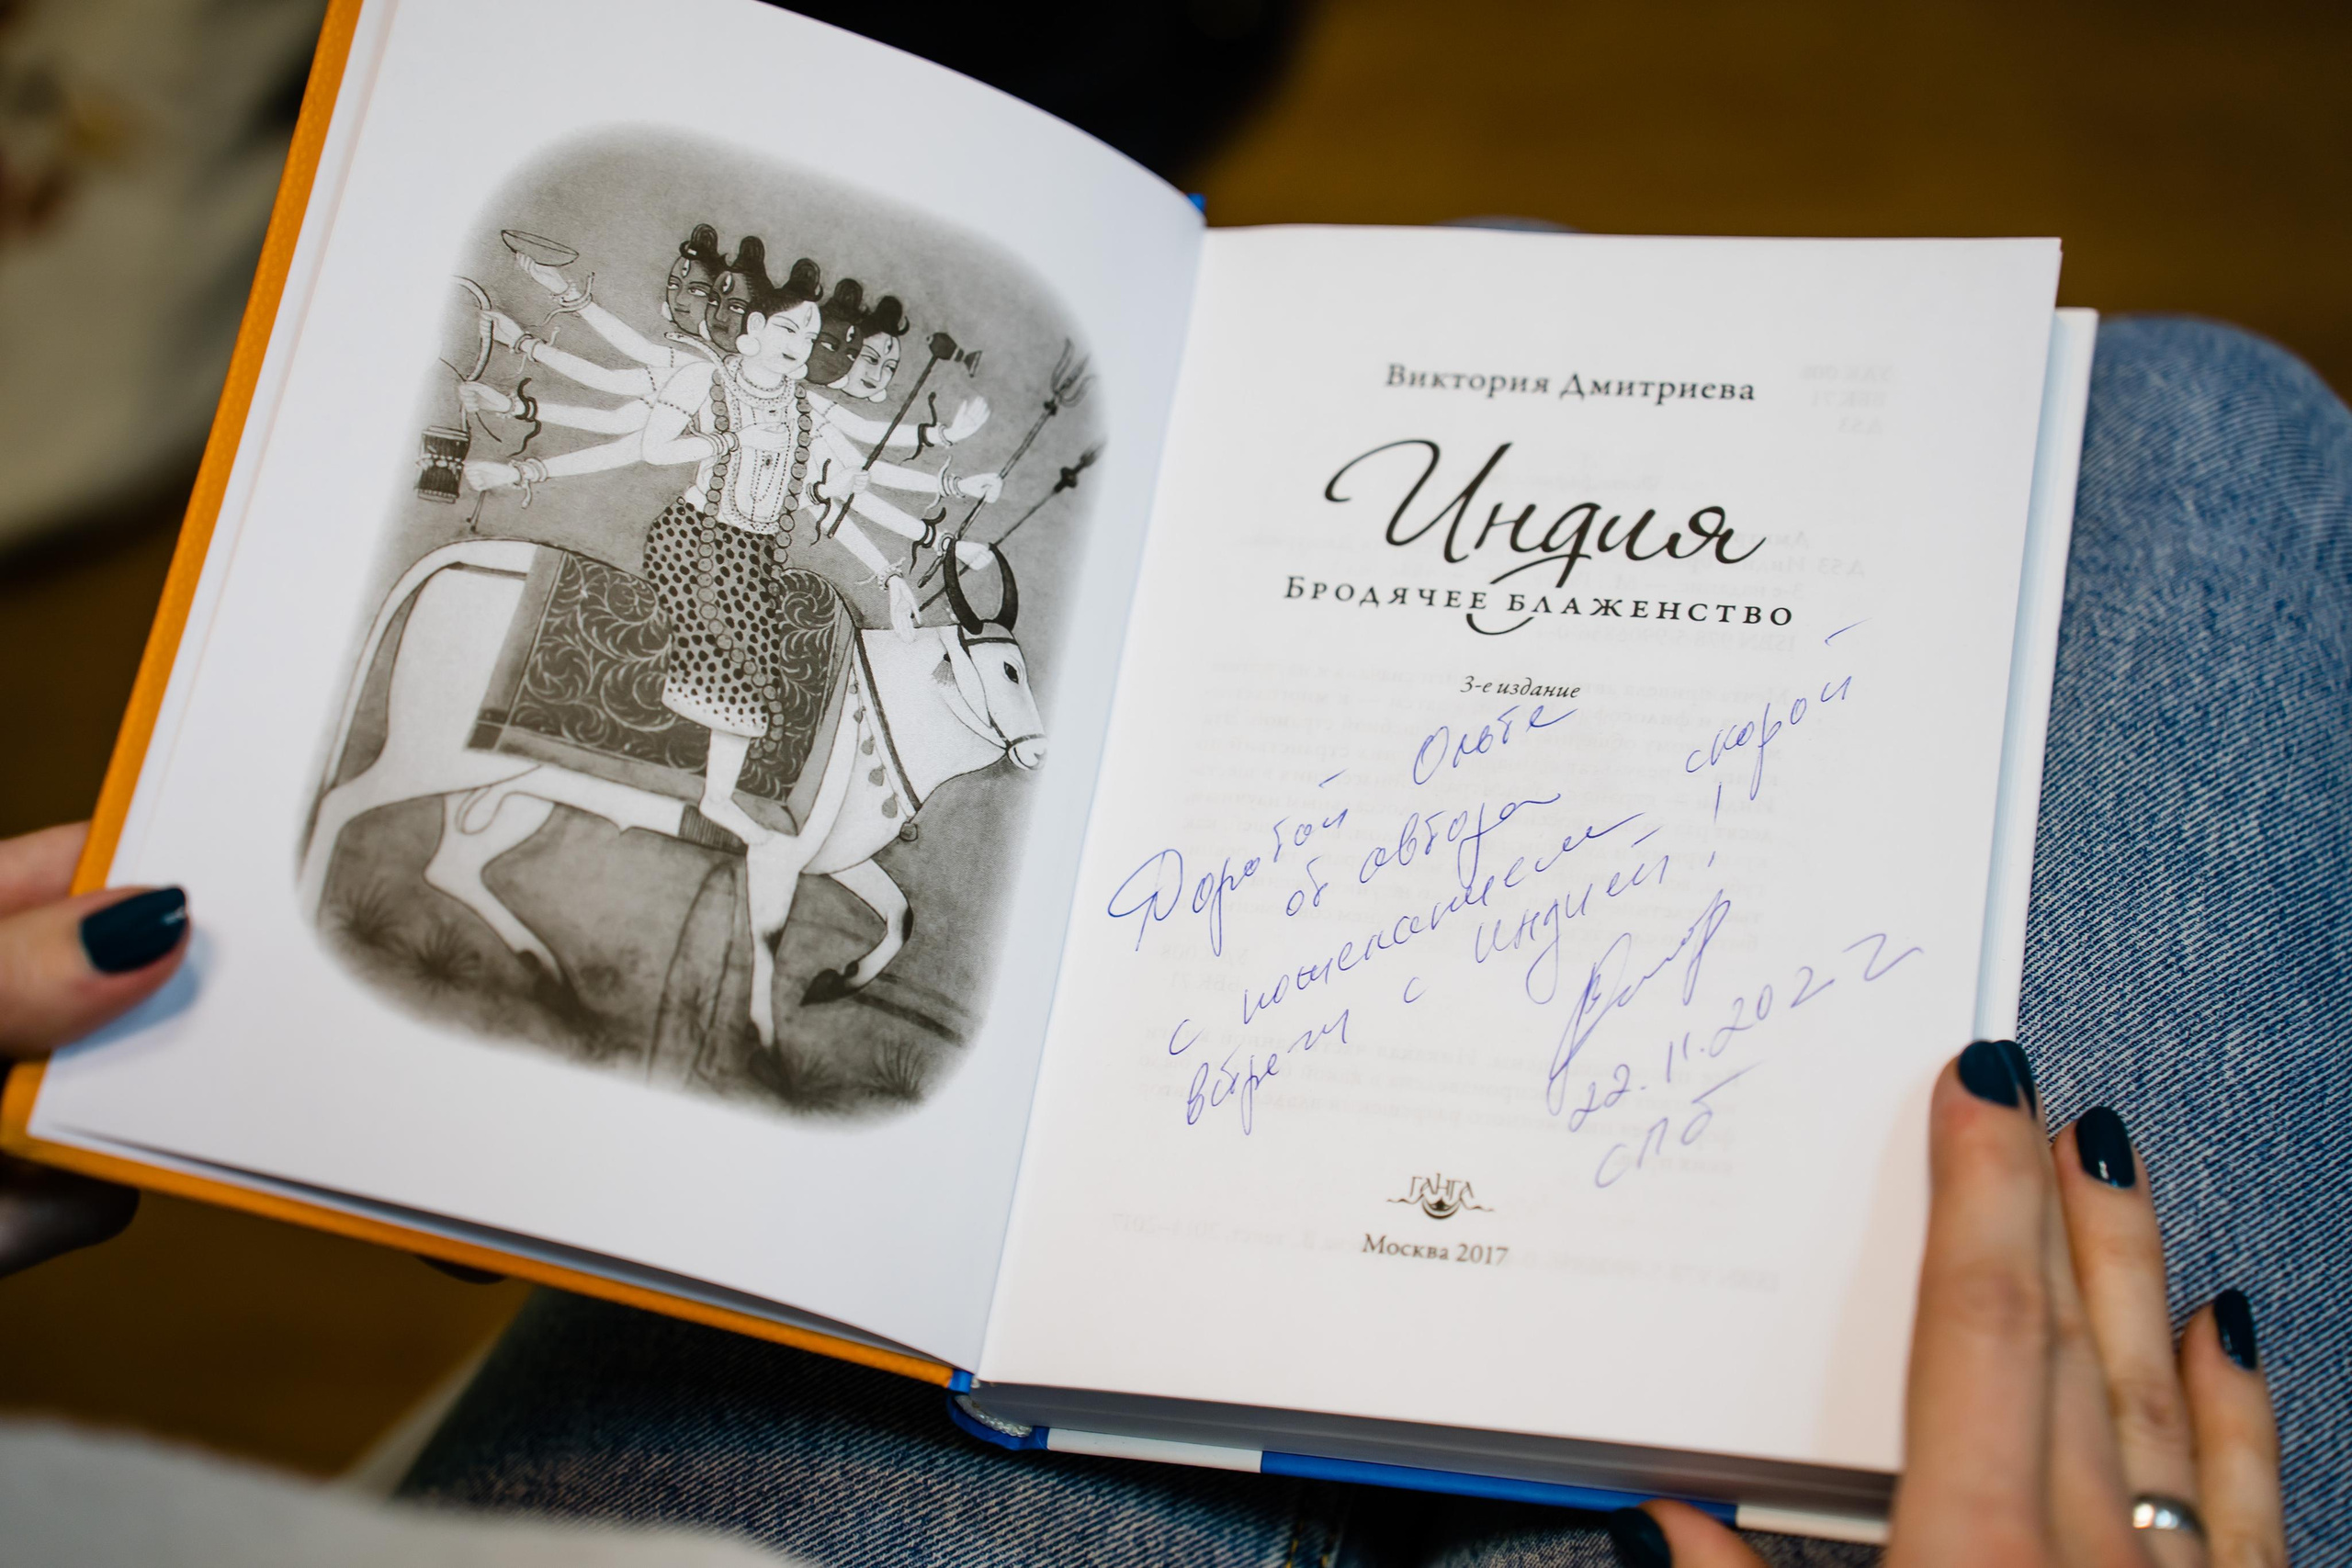 Виктория Дмитриева
Индия
Бродячее блаженство
3-е издание
Дорогой Ольге
от автора
с пожеланием скорой
встречи с Индией!
22.11.2022
СПб
ГАНГА
Москва 2017